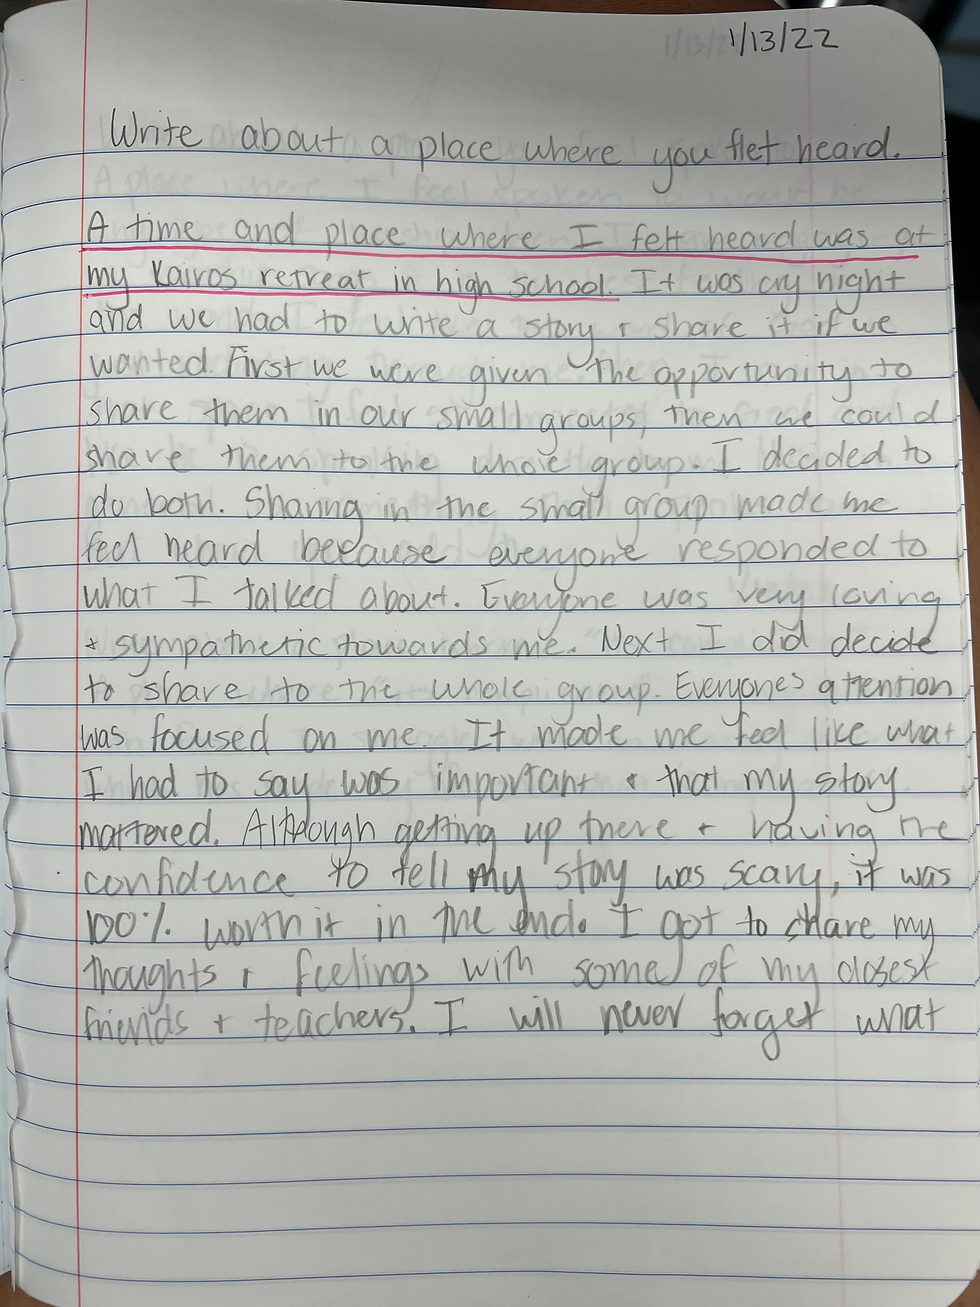 1/13/22
Write about a place where you flet heard.
A time and place where I felt heard was at
my Kairos retreat in high school. It was cry night
and we had to write a story + share it if we
wanted. First we were given the opportunity to
share them in our small groups, then we could
share them to the whole group. I decided to
do both. Sharing in the small group made me
feel heard because everyone responded to
what I talked about. Everyone was very loving
+ sympathetic towards me. Next I did decide
to share to the whole group. Everyones attention
was focused on me. It made me feel like what
I had to say was important + that my story
mattered. Although getting up there + having the
confidence to tell my story was scary, it was
100% worth it in the end. I got to share my
thoughts + feelings with some of my closest
friends + teachers. I will never forget what